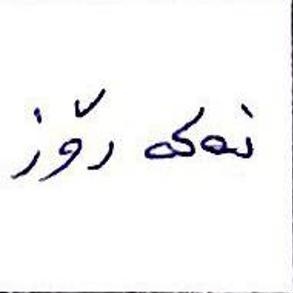 نەکە رۆژ